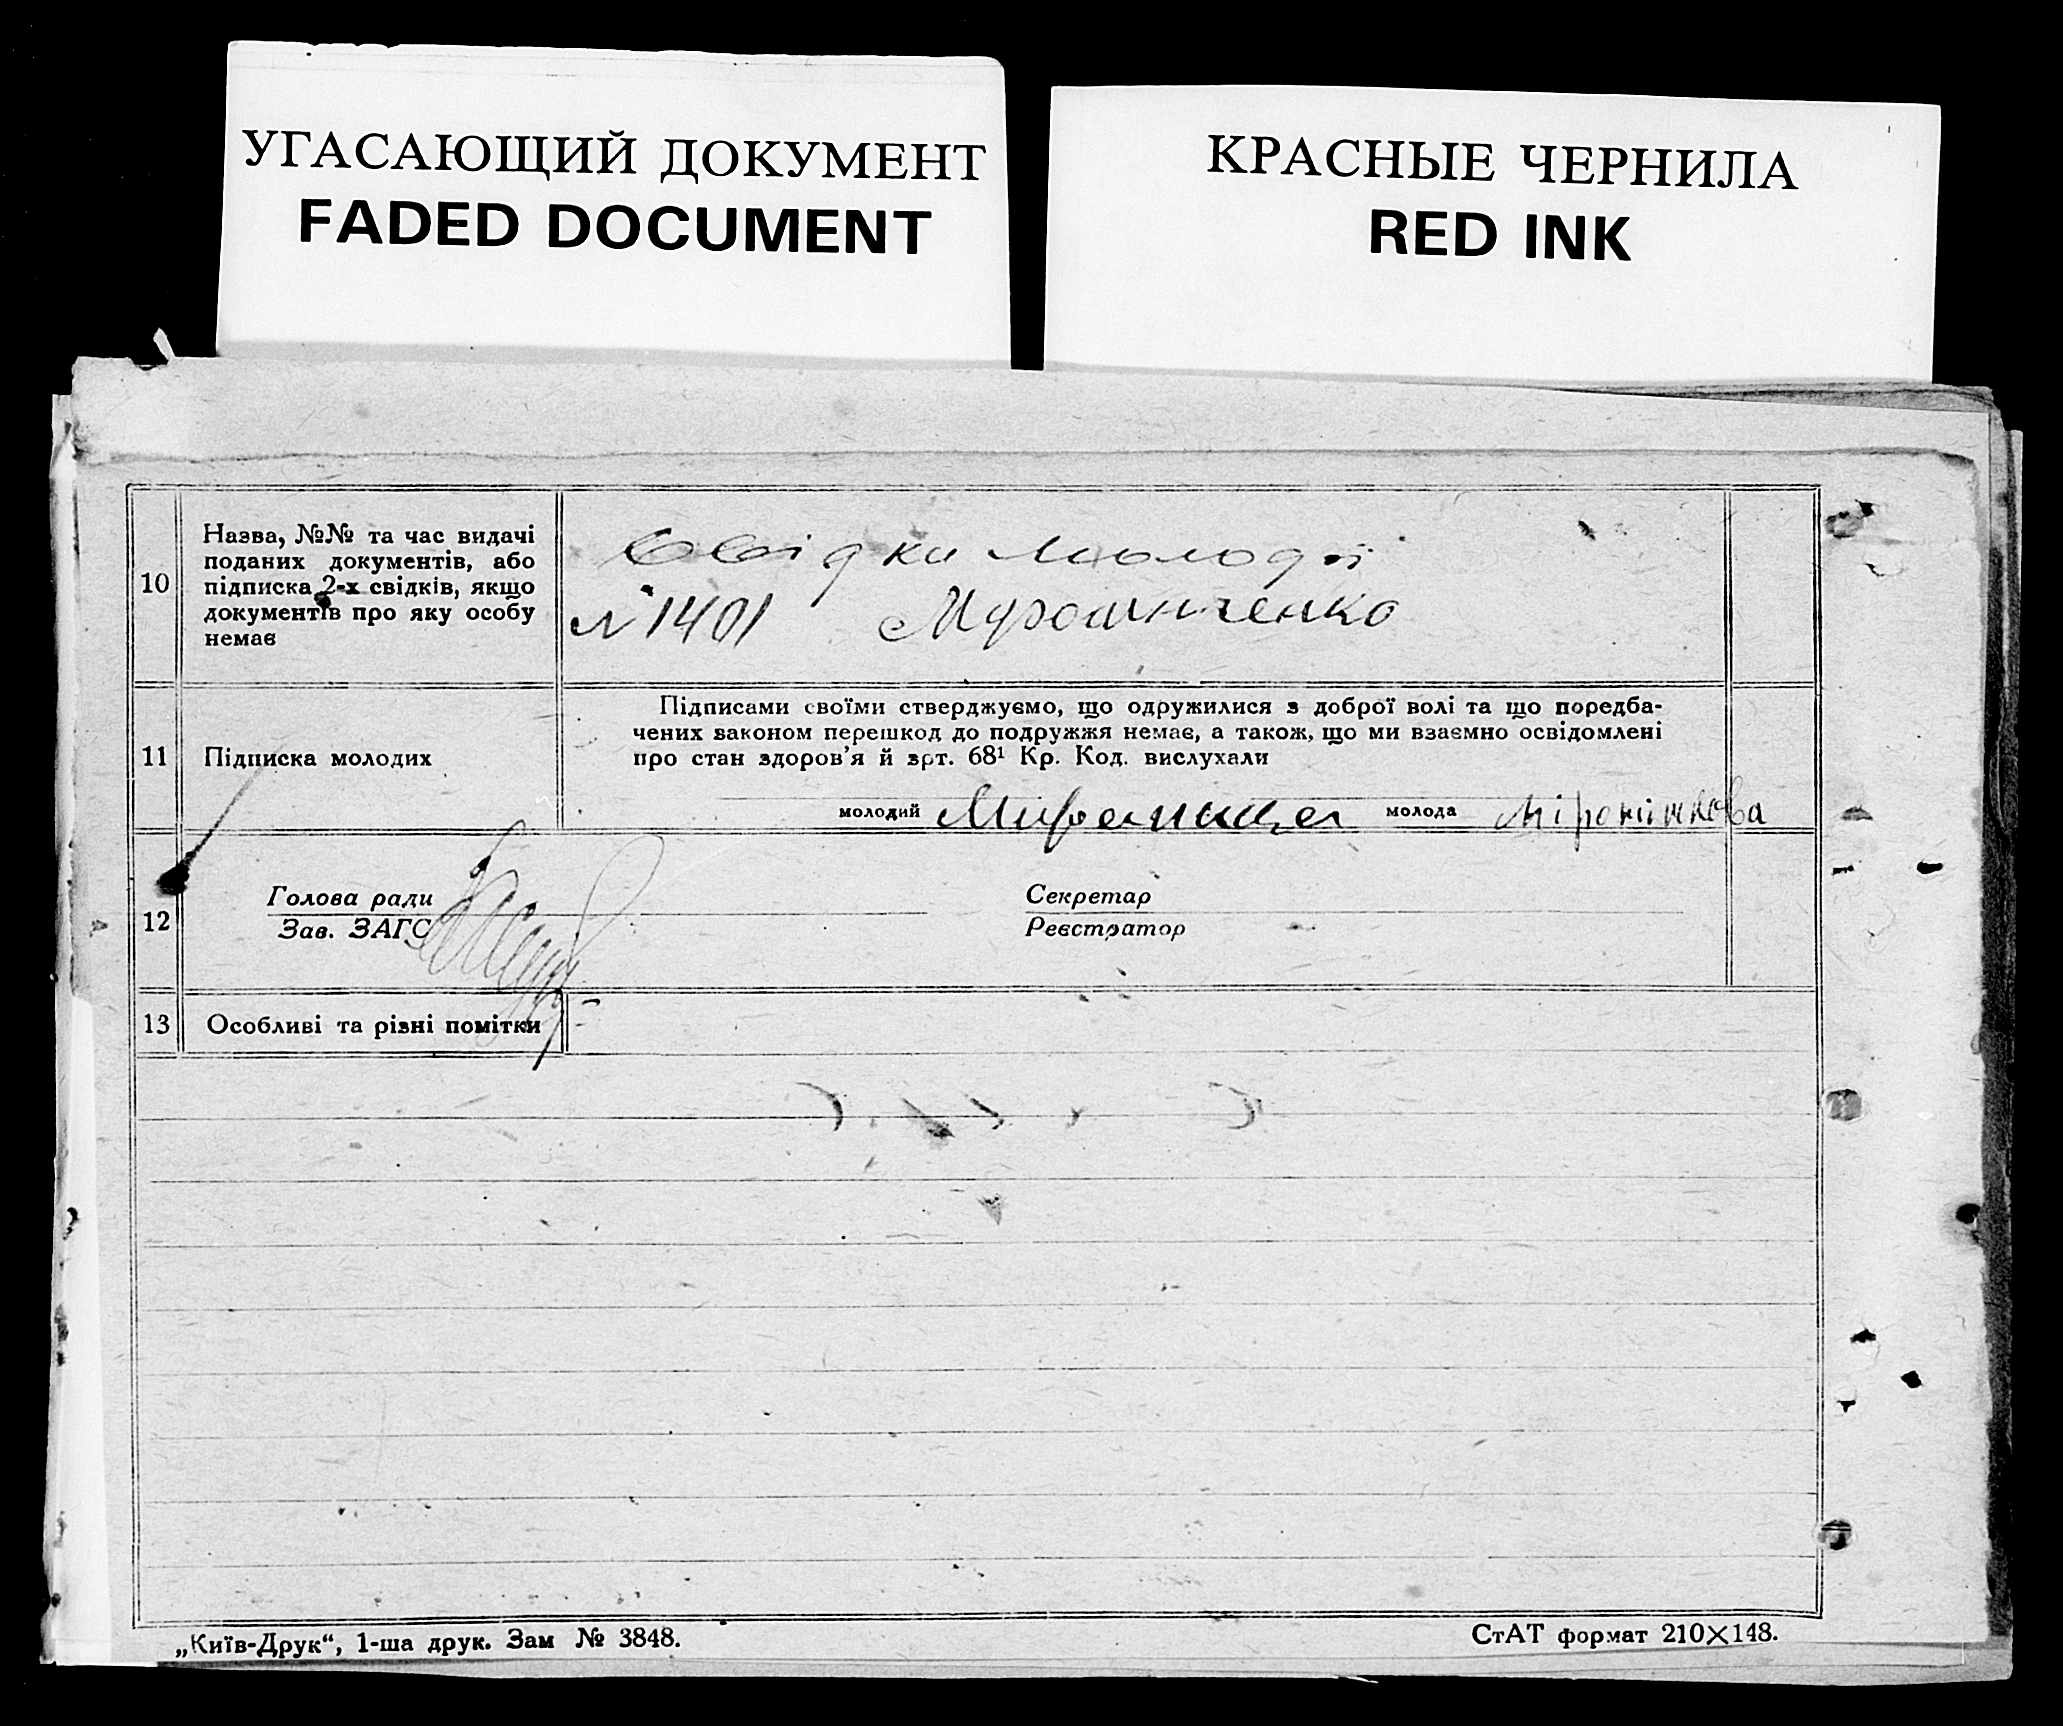 УГАСАЮЩИЙ ДОКУМЕНТ
FADED DOCUMENT
КРАСНЫЕ ЧЕРНИЛА
RED INK
10
Назва, №№ та час видачі
поданих документів, або
підписка 2-х свідків, якщо
документів про яку особу
немає
Свідки молодої
№ 1401
11
Підписка молодих
Підписами своїми стверджуємо, що одружилися з доброї волі та що передба-
чених законом перешкод до подружжя немає, а також, що ми взаємно освідомлені
про стан здоров'я й арт. 68¹ Кр. Код. вислухали
молодий
молода
12
Голова ради
Зав. ЗАГС
Секретар
Реєстратор
13
Особливі та різні помітки
„Київ-Друк“, 1-ша друк. Зам № 3848.
СтАТ формат 210×148.